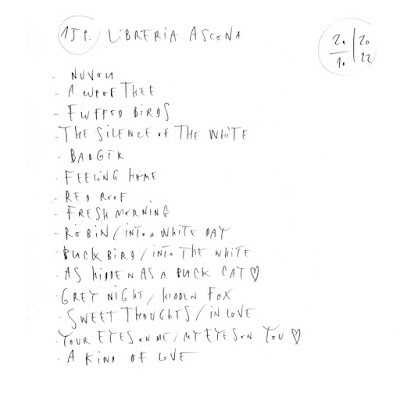 15P. LIBRERIA ASCONA
20/10 2022
- NUVOLE
- A CUP OF THEE
- FLUFFED BIRDS
- THE SILENCE OF THE WHITE
- BADGER
- FEELING HOME
- RED ROOF
- FRESH MORNING
- ROBIN / INTO A WHITE DAY
- BLACK BIRD / INTO THE WHITE
- AS HIDDEN AS A BLACK CAT ♡
- GREY NIGHT / HIDDEN FOX
- SWEET THOUGHTS / IN LOVE
- YOUR EYES ON ME / MY EYES ON YOU ♡
- A KIND OF LOVE